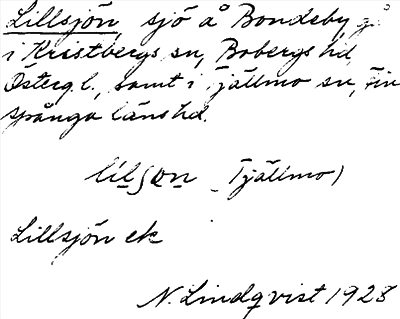 Lillsjön, sjö å Bondeby
i Kristbergs sn, Bobergs hd,
Österg. l., samt i Tjällmo sn, Fin
spånga läns hd.
lilson (Tjällmo)
Lillsjön ek
N. Lindqvist 1928